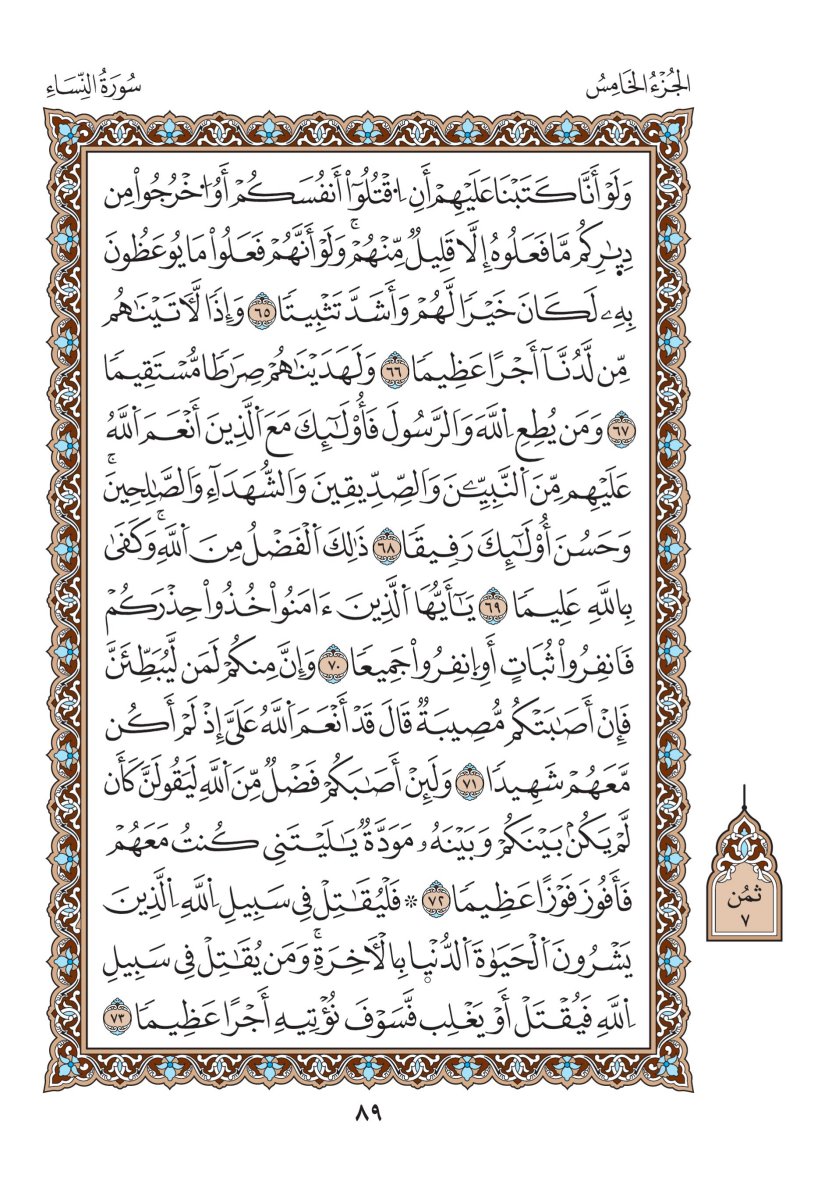 الجُزْءُ الخَامِسُ
سُورَةُ النِّسَاءِ
وَلَوْ أَنَّا كَتَبْنَا عَلَيْهِمْ أَنِ اُ۟قْتُلُوٓاْ أَنفُسَكُمْ أَوُ اُ۟خْرُجُواْ مِن
دِيٰ۪رِكُم مَّا فَعَلُوهُ إِلَّا قَلِيلٌ مِّنْهُمْۖ وَلَوْ أَنَّهُمْ فَعَلُواْ مَا يُوعَظُونَ
بِهِۦ لَكَانَ خَيْرًا لَّهُمْ وَأَشَدَّ تَثْبِيتًا ٦٥ وَإِذًا لَّأٓتَيْنَٰهُم
مِّن لَّدُنَّآ أَجْرًا عَظِيمًا ٦٦ وَلَهَدَيْنَٰهُمْ صِرَٰطًا مُّسْتَقِيمًا
٦٧ وَمَن يُطِعِ اِ۬للَّهَ وَالرَّسُولَ فَأُوْلَٰٓئِكَ مَعَ اَ۬لَّذِينَ أَنْعَمَ اَ۬للَّهُ
عَلَيْهِم مِّنَ اَ۬لنَّبِيِّـۧنَ وَالصِّدِّيقِينَ وَالشُّهَدَآءِ وَالصَّٰلِحِينَۖ
وَحَسُنَ أُوْلَٰٓئِكَ رَفِيقًا ٦٨ ذَٰلِكَ اَ۬لْفَضْلُ مِنَ اَ۬للَّهِۖ وَكَفَىٰ
بِاللَّهِ عَلِيمًا ٦٩ يَٰٓأَيُّهَا اَ۬لَّذِينَ ءَامَنُواْ خُذُواْ حِذْرَكُمْ
فَانفِرُواْ ثُبَاتٍ أَوِ اِ۪نفِرُواْ جَمِيعًا ٧٠ وَإِنَّ مِنكُمْ لَمَن لَّيُبَطِّئَنَّ
فَإِنْ أَصَٰبَتْكُم مُّصِيبَةٌ قَالَ قَدْ أَنْعَمَ اَ۬للَّهُ عَلَيَّ إِذْ لَمْ أَكُن
مَّعَهُمْ شَهِيدًا ٧١ وَلَئِنْ أَصَٰبَكُمْ فَضْلٌ مِّنَ اَ۬للَّهِ لَيَقُولَنَّ كَأَن
لَّمْ يَكُنۢ بَيْنَكُمْ وَبَيْنَهُۥ مَوَدَّةٌ يَٰلَيْتَنِي كُنتُ مَعَهُمْ
فَأَفُوزَ فَوْزًا عَظِيمًا ٧٢ ۞ فَلْيُقَٰتِلْ فِي سَبِيلِ اِ۬للَّهِ اِ۬لَّذِينَ
يَشْرُونَ اَ۬لْحَيَوٰةَ اَ۬لدُّنْي۪ا بِالْأٓخِرَةِۖ وَمَن يُقَٰتِلْ فِي سَبِيلِ
اِ۬للَّهِ فَيُقْتَلْ أَوْ يَغْلِب فَّسَوْفَ نُؤْتِيهِ أَجْرًا عَظِيمًا ٧٣
ثُمُن
٧
٨٩